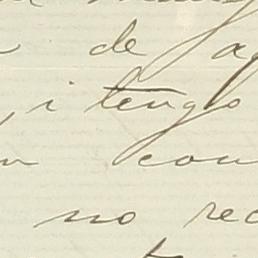 de a
, i tengo
con
no rec